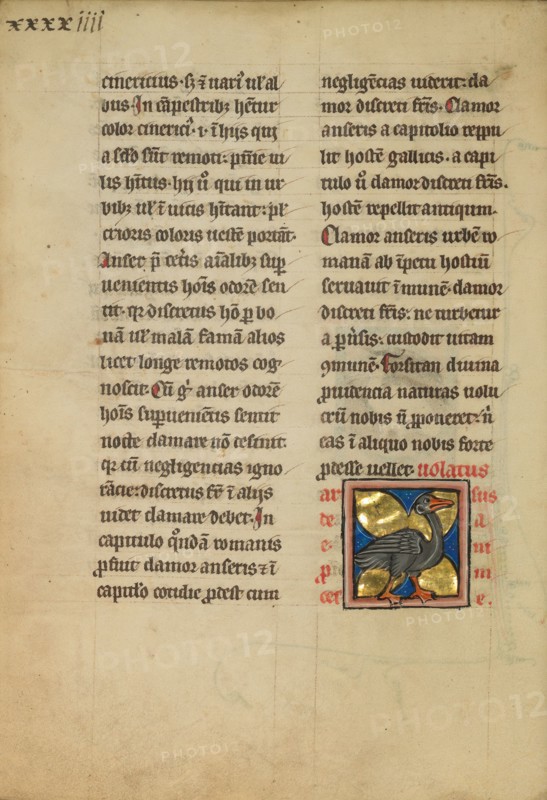 xxxxiiii
cinericius · sꝫ ⁊ uari᷒ ul̓ al
bus · In cāpestribꝫ hētur
color cinerici᷒ · i · ī hijs qui
a sc̄lo sūt remoti : pīme ui
lis hītus · hij u̓o qui in ur
bibꝫ ul̓ ī uicis hītant : pl̓
crioris coloris uestē portāt ·
Anser p̄ cet̓is aīalibꝫ sup̱
uenientis hoīs odorē sen
tit · qꝛ discretus hō ꝑ bo
nā ul̓ malā famā alios
licet longe remotos cog
noscit · Cū g̓ anser odorē
hoīs suꝑueniētis sentit
nocte clamare nō desinit ·
qꝛ cū negligencias igno
rācie : discretus fr̄ ī alijs
uidet clamare debet · In
capitulo q̊ndā romanis
ꝓfuit clamor anseris ⁊ ī
capitl̓o cotidie ꝓdest cum
negligēcias uiderit : cla
mor discreti fr̄is · Clamor
anseris a capitolio reppu
lit hostē gallicis · a capi
tulo u̓o clamor discreti fr̄is ·
hostē repellit antiqum ·
Clamor anseris urbē ro
manā ab īpetu hostiū
seruauit īmunē · clamor
discreti fr̄is : ne turbetur
a ꝑu̓sis : custodit uitam
ꝯmunē · Forsitan diuina
ꝓuidencia naturas uolu
crū nobis n̄ ꝓponeret : n̄
eas ī aliquo nobis forte
ꝓdesse uellet · uolatus
ar sus
de a
e · m
ꝓ m
cel e ·
PHOTO12